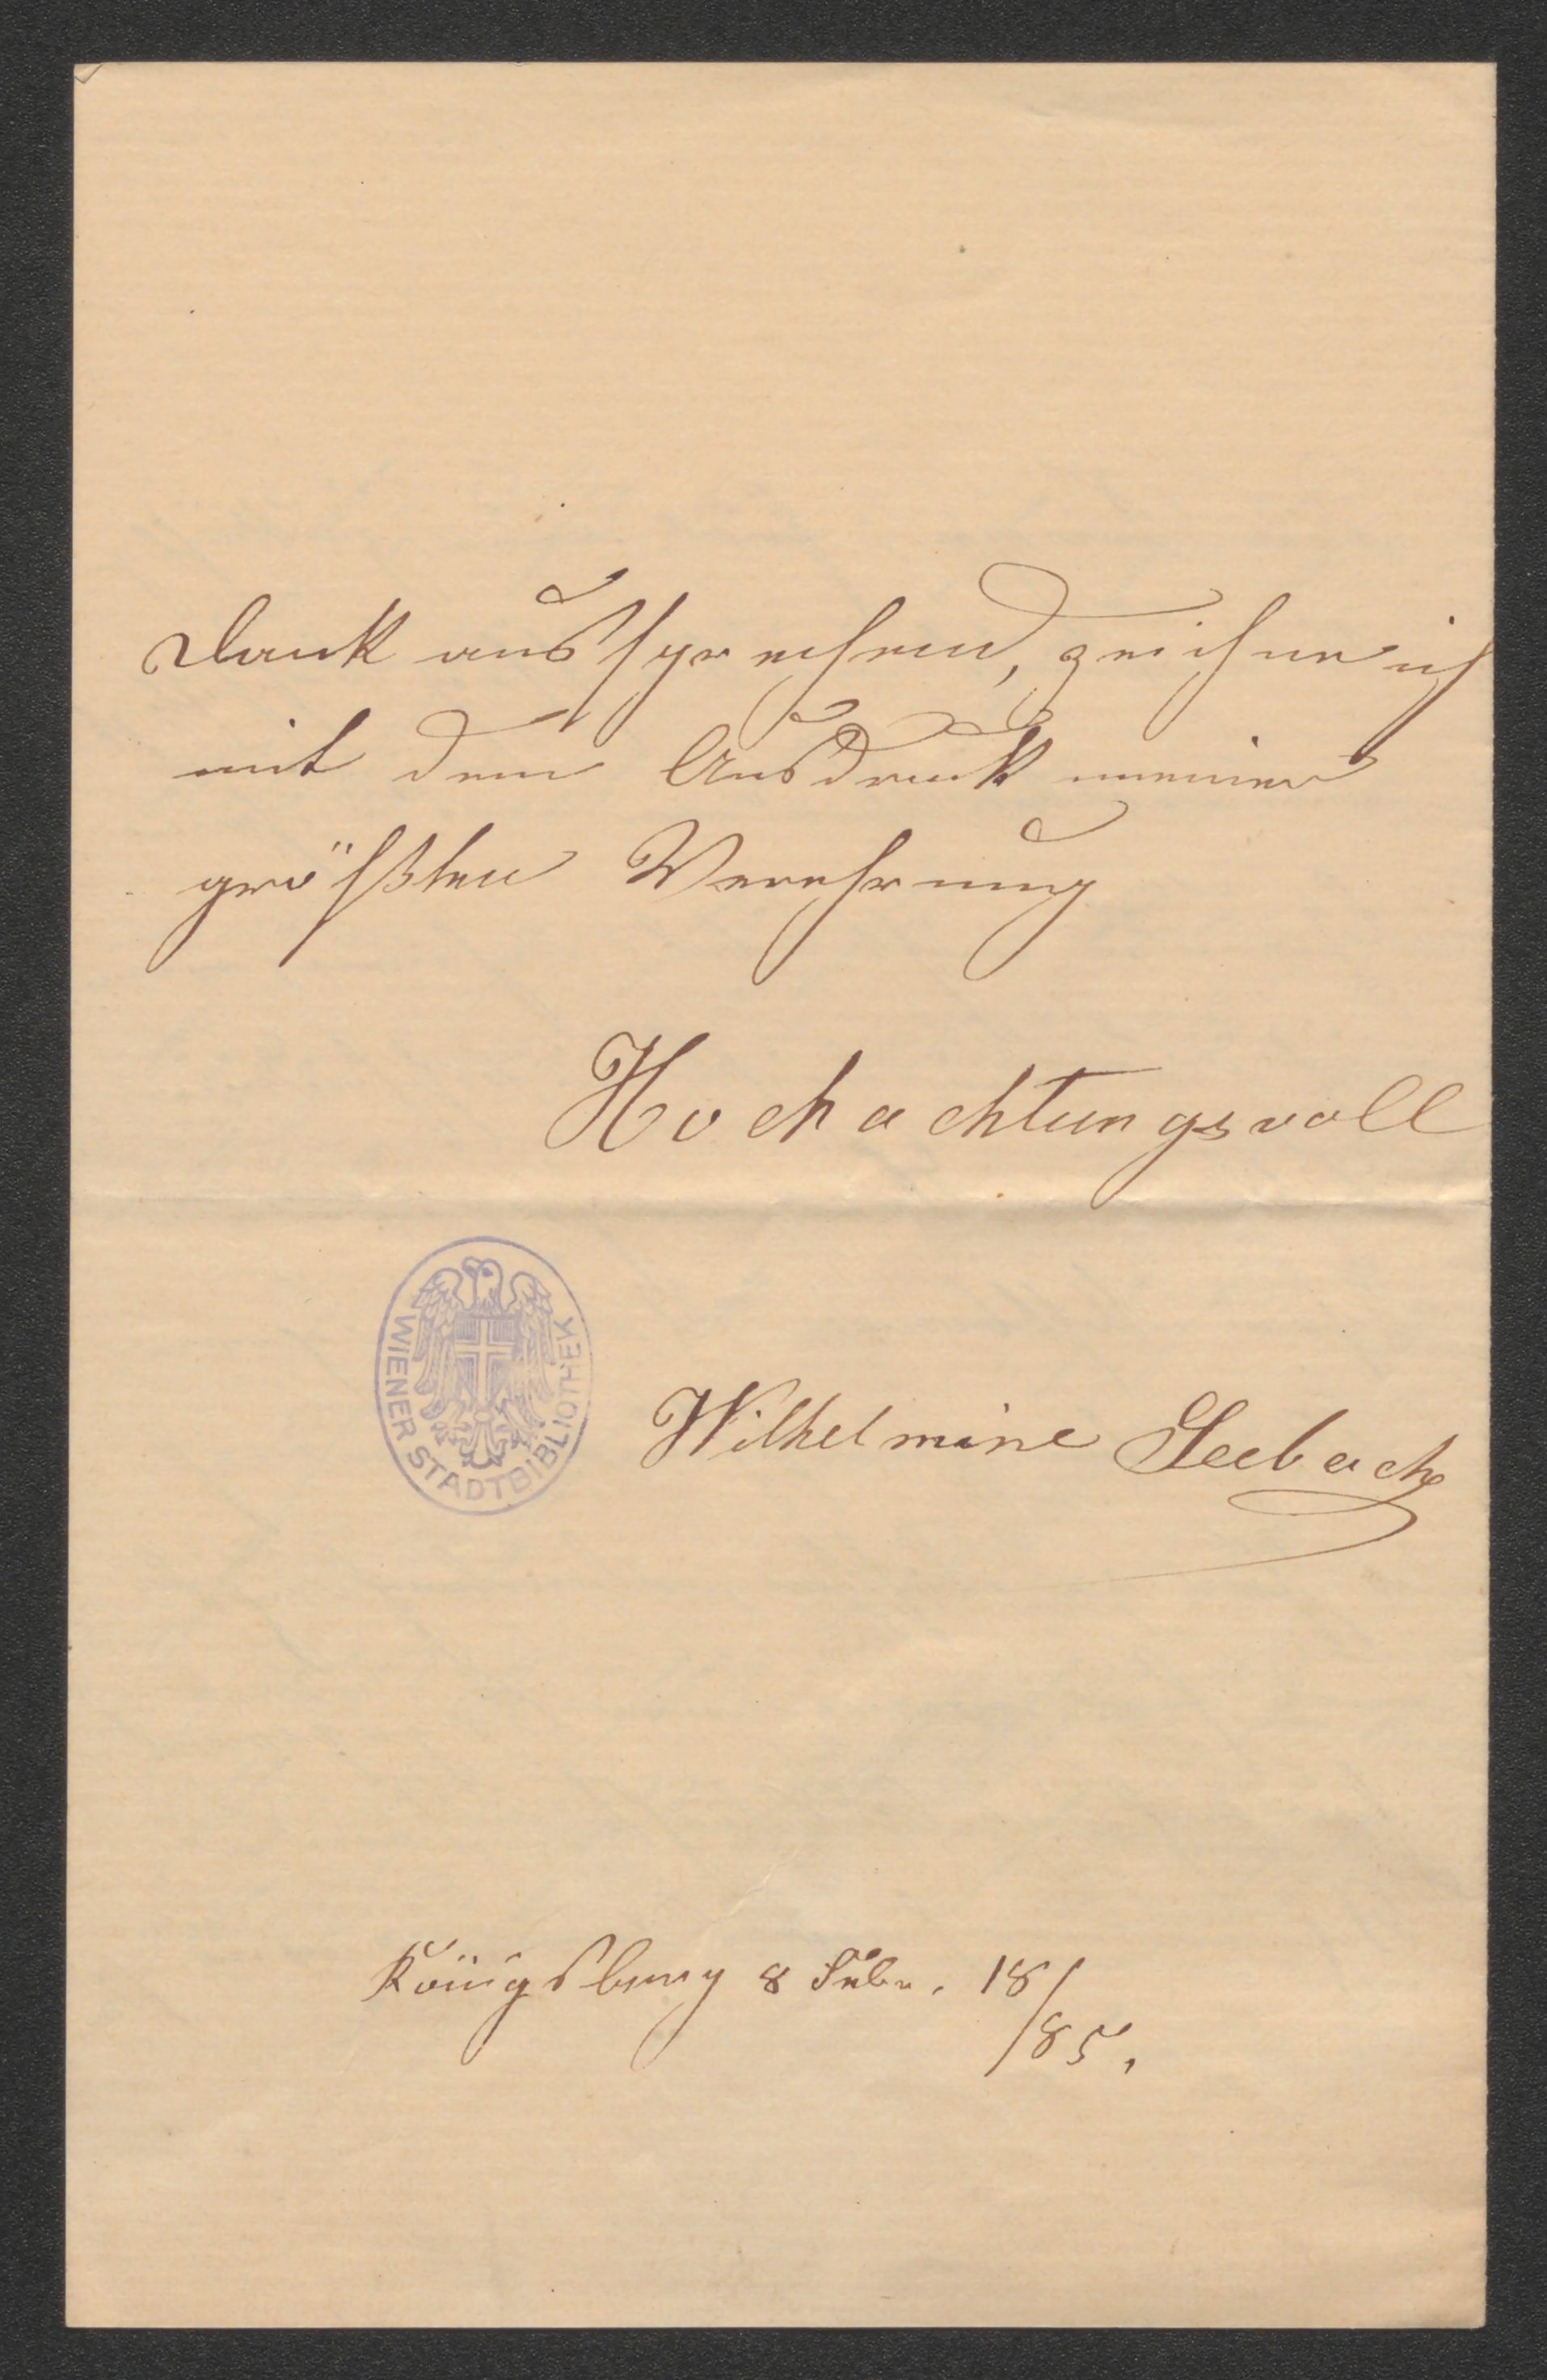 Dank aussprechend, zeichne ich
mit dem Ausdruck meiner
größten Verehrung
Hochachtungsvoll
WIENER STADTBIBLIOTHEK
Wilhelmine Seebach
Königsberg 8 Febr. 18/
/85.